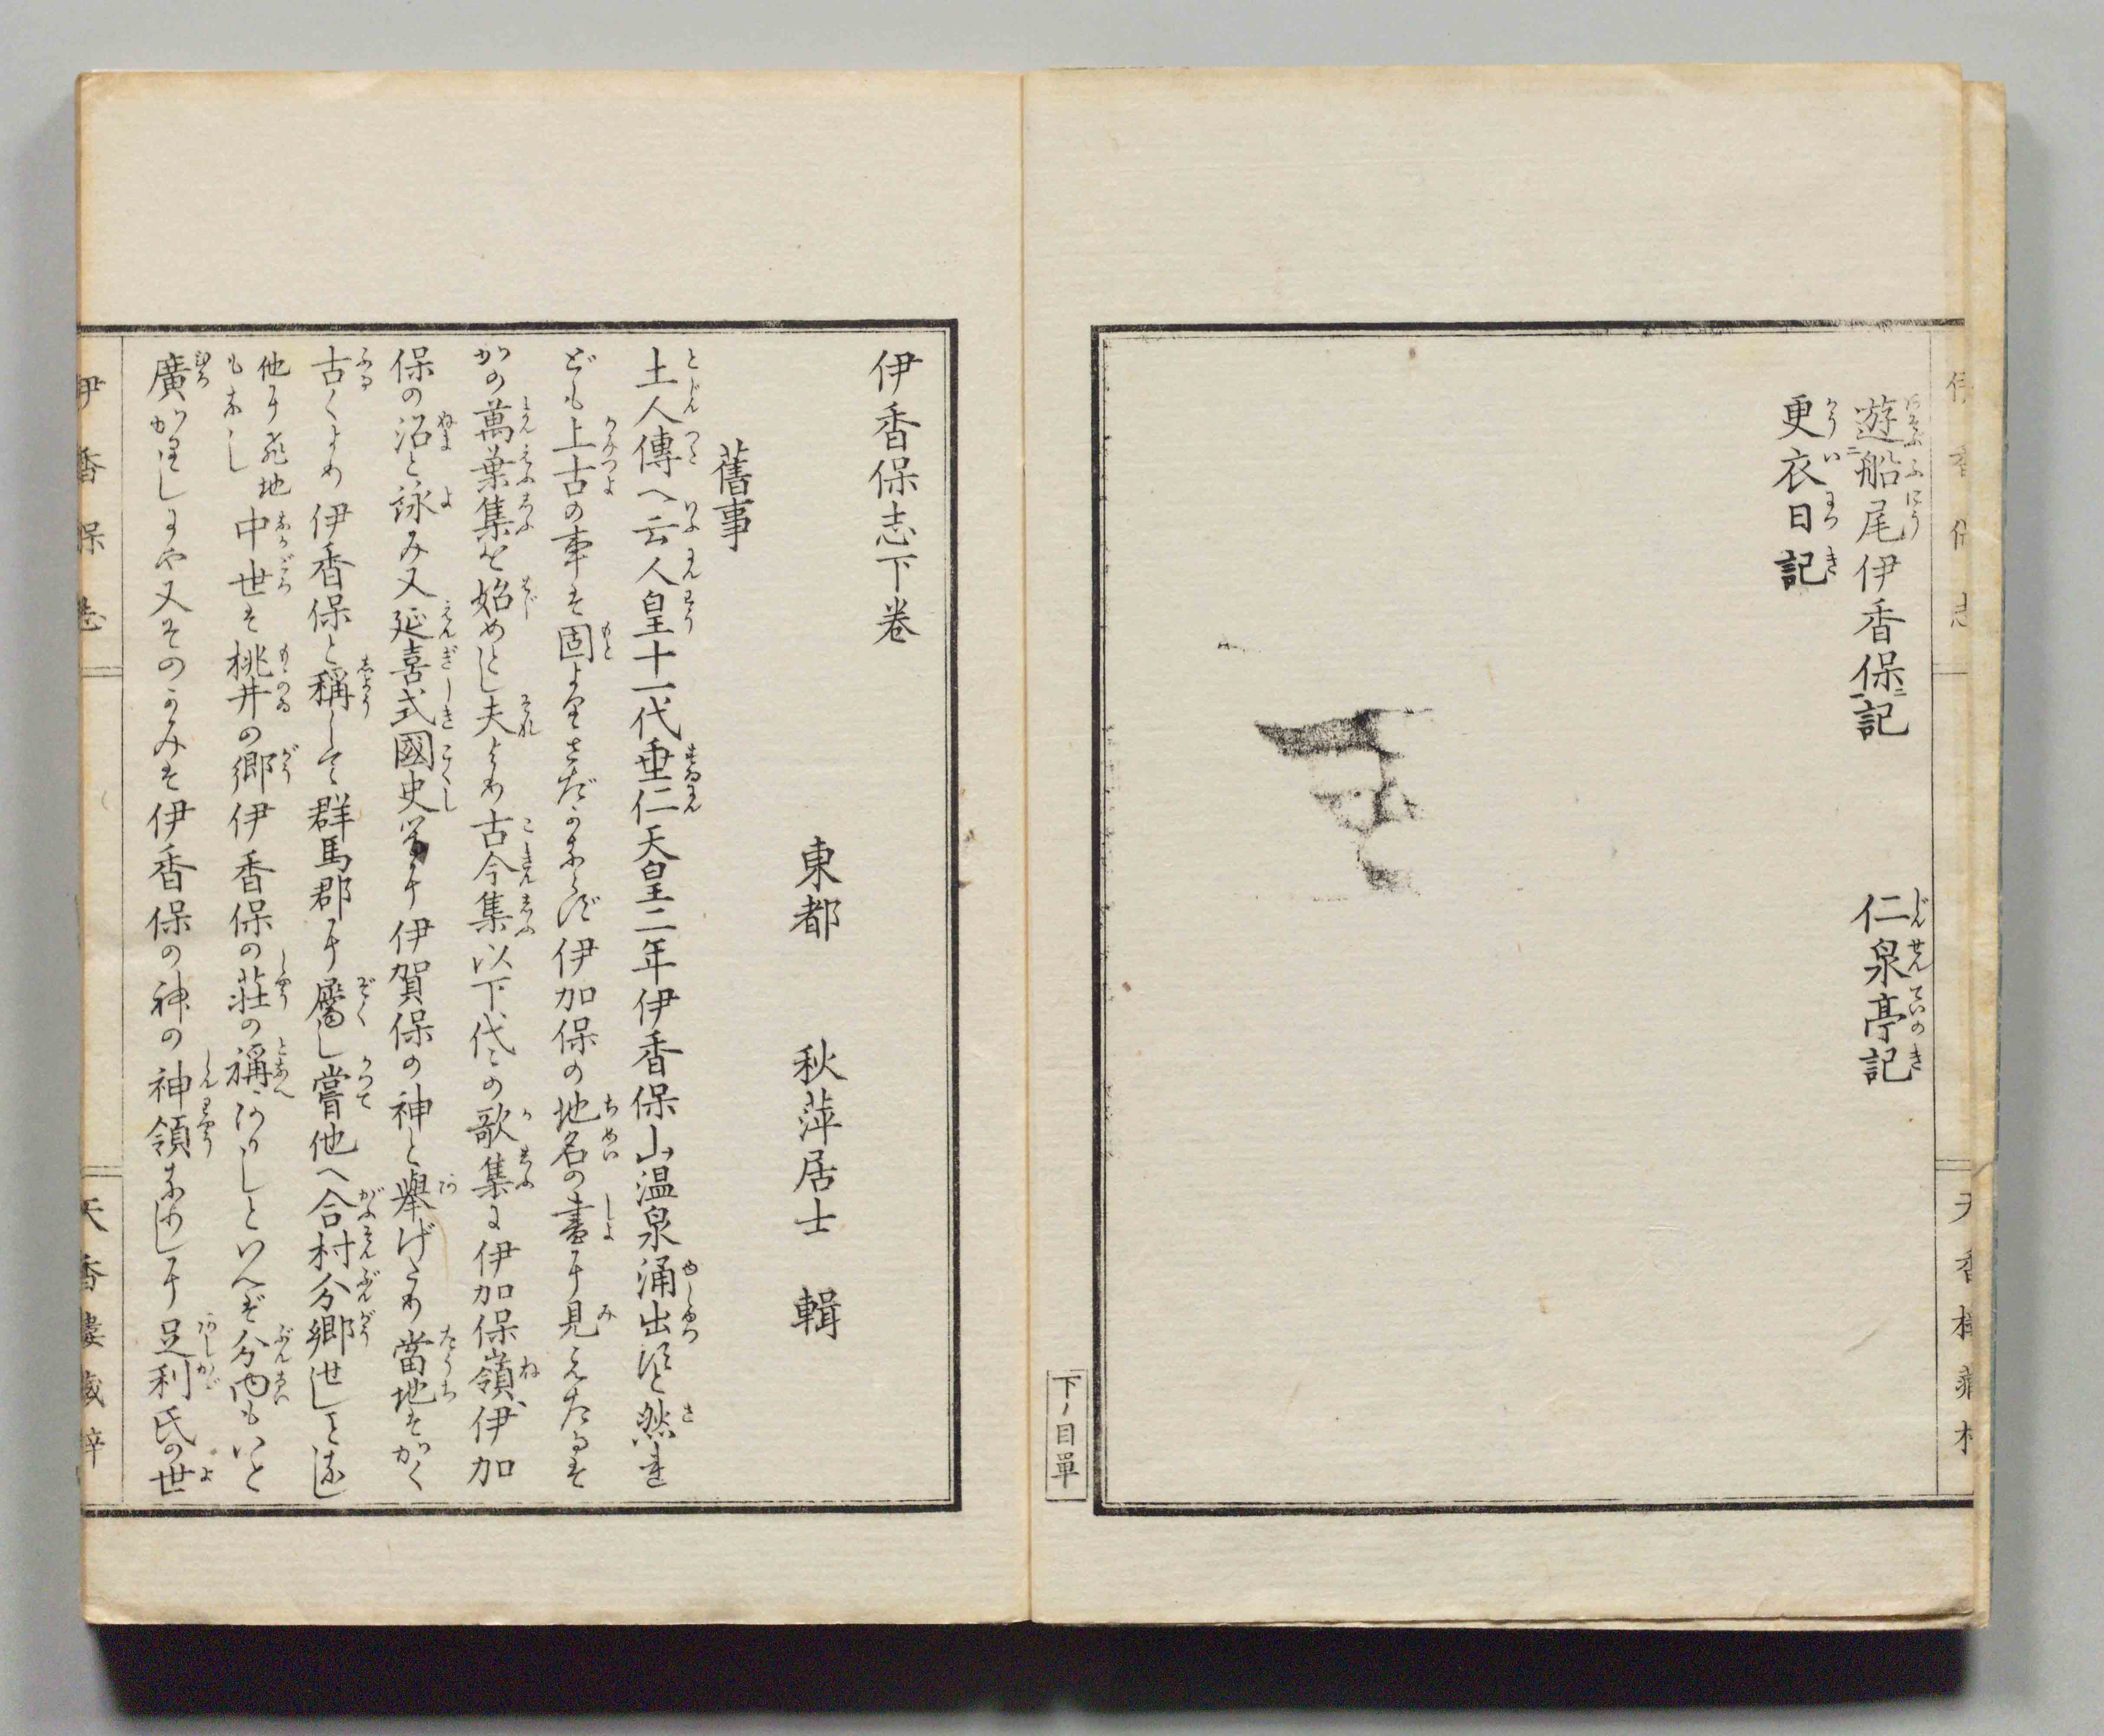 遊船尾伊香保記
仁泉亭記
更衣日記
下ノ目單
伊香保志下巻
東都 秋萍居士 輯
舊事
土人傳へ云人皇十一代垂仁天皇二年伊香保山温泉涌出すと然れ
ども上古の事は固よりさだかならず伊加保の地名の書に見えたるは
かの萬葉集を始めとし夫より古今集以下代々の歌集に伊加保嶺、伊加
保の沼と詠み又延喜式國史等に伊賀保の神と擧げたり當地はかく
古くより伊香保と稱して群馬郡に屬し嘗他へ合村分郷せしを
他に飛地
もなし
中世は桃井の郷伊香保の莊の稱ありしといへど分内もいと
廣かりしにや又そのかみは伊香保の神の神領なりしに足利氏の世
伊香保志
天香樓藏梓